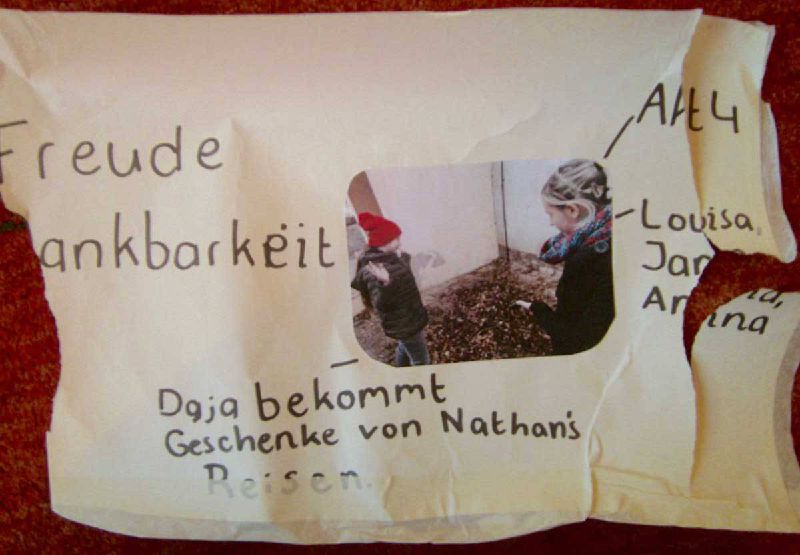 Freude
ankbarkeit
Akt 4
Louisa,
Daja bekommt
Geschenke von Nathan's
Reisen.